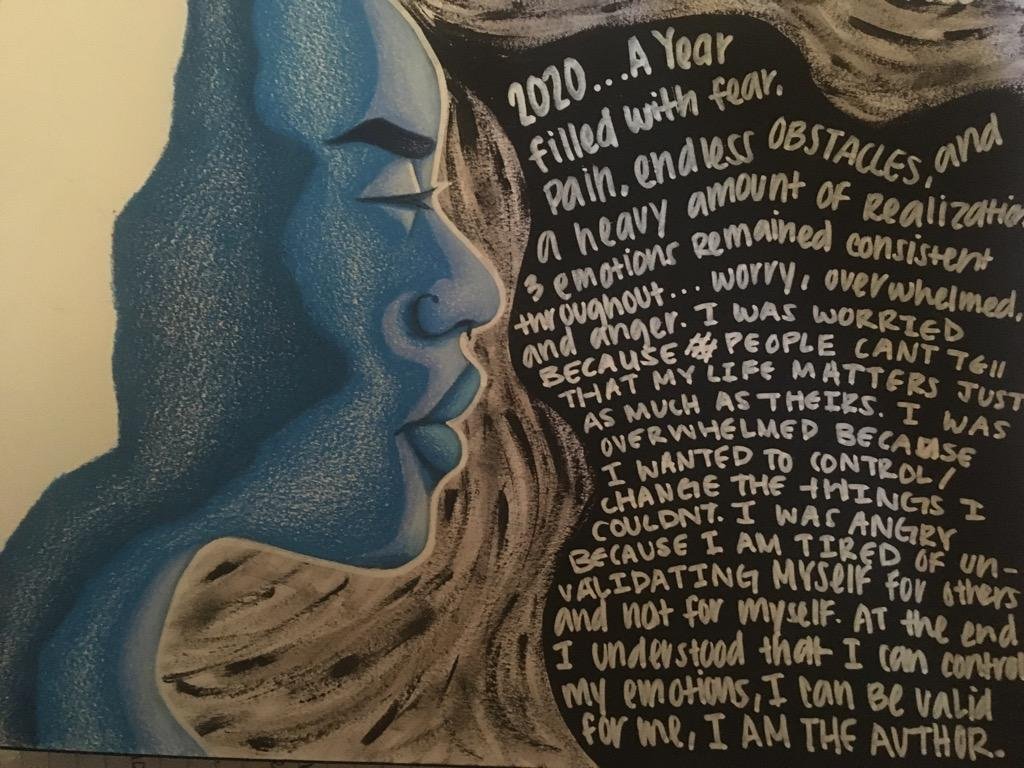 2020...A Year
filled with fear.
pain, endless OBSTACLES, and
a heavy amount of Realizatio
3 emotions Remained consistent
throughout... worry, overwhelmed,
and anger. I WAS WORRIED
BECAUSE PEOPLE CANT TEll
THAT MY LIFE MATTERS JUST
AS MUCH AS THEIRS. I WAS
OVERWHELMED BECAUSE
I WANTED TO CONTROL/
CHANGE THE tHINGS I
COULDNT. I WAS ANGRY
BECAUSE I AM TIRED OF UN-
VALIDATING MYSElf FOR others
and not for myself. AT the end
I understood that I can control
my emotions, I can BE valid
for me, I AM THE AUTHOR.